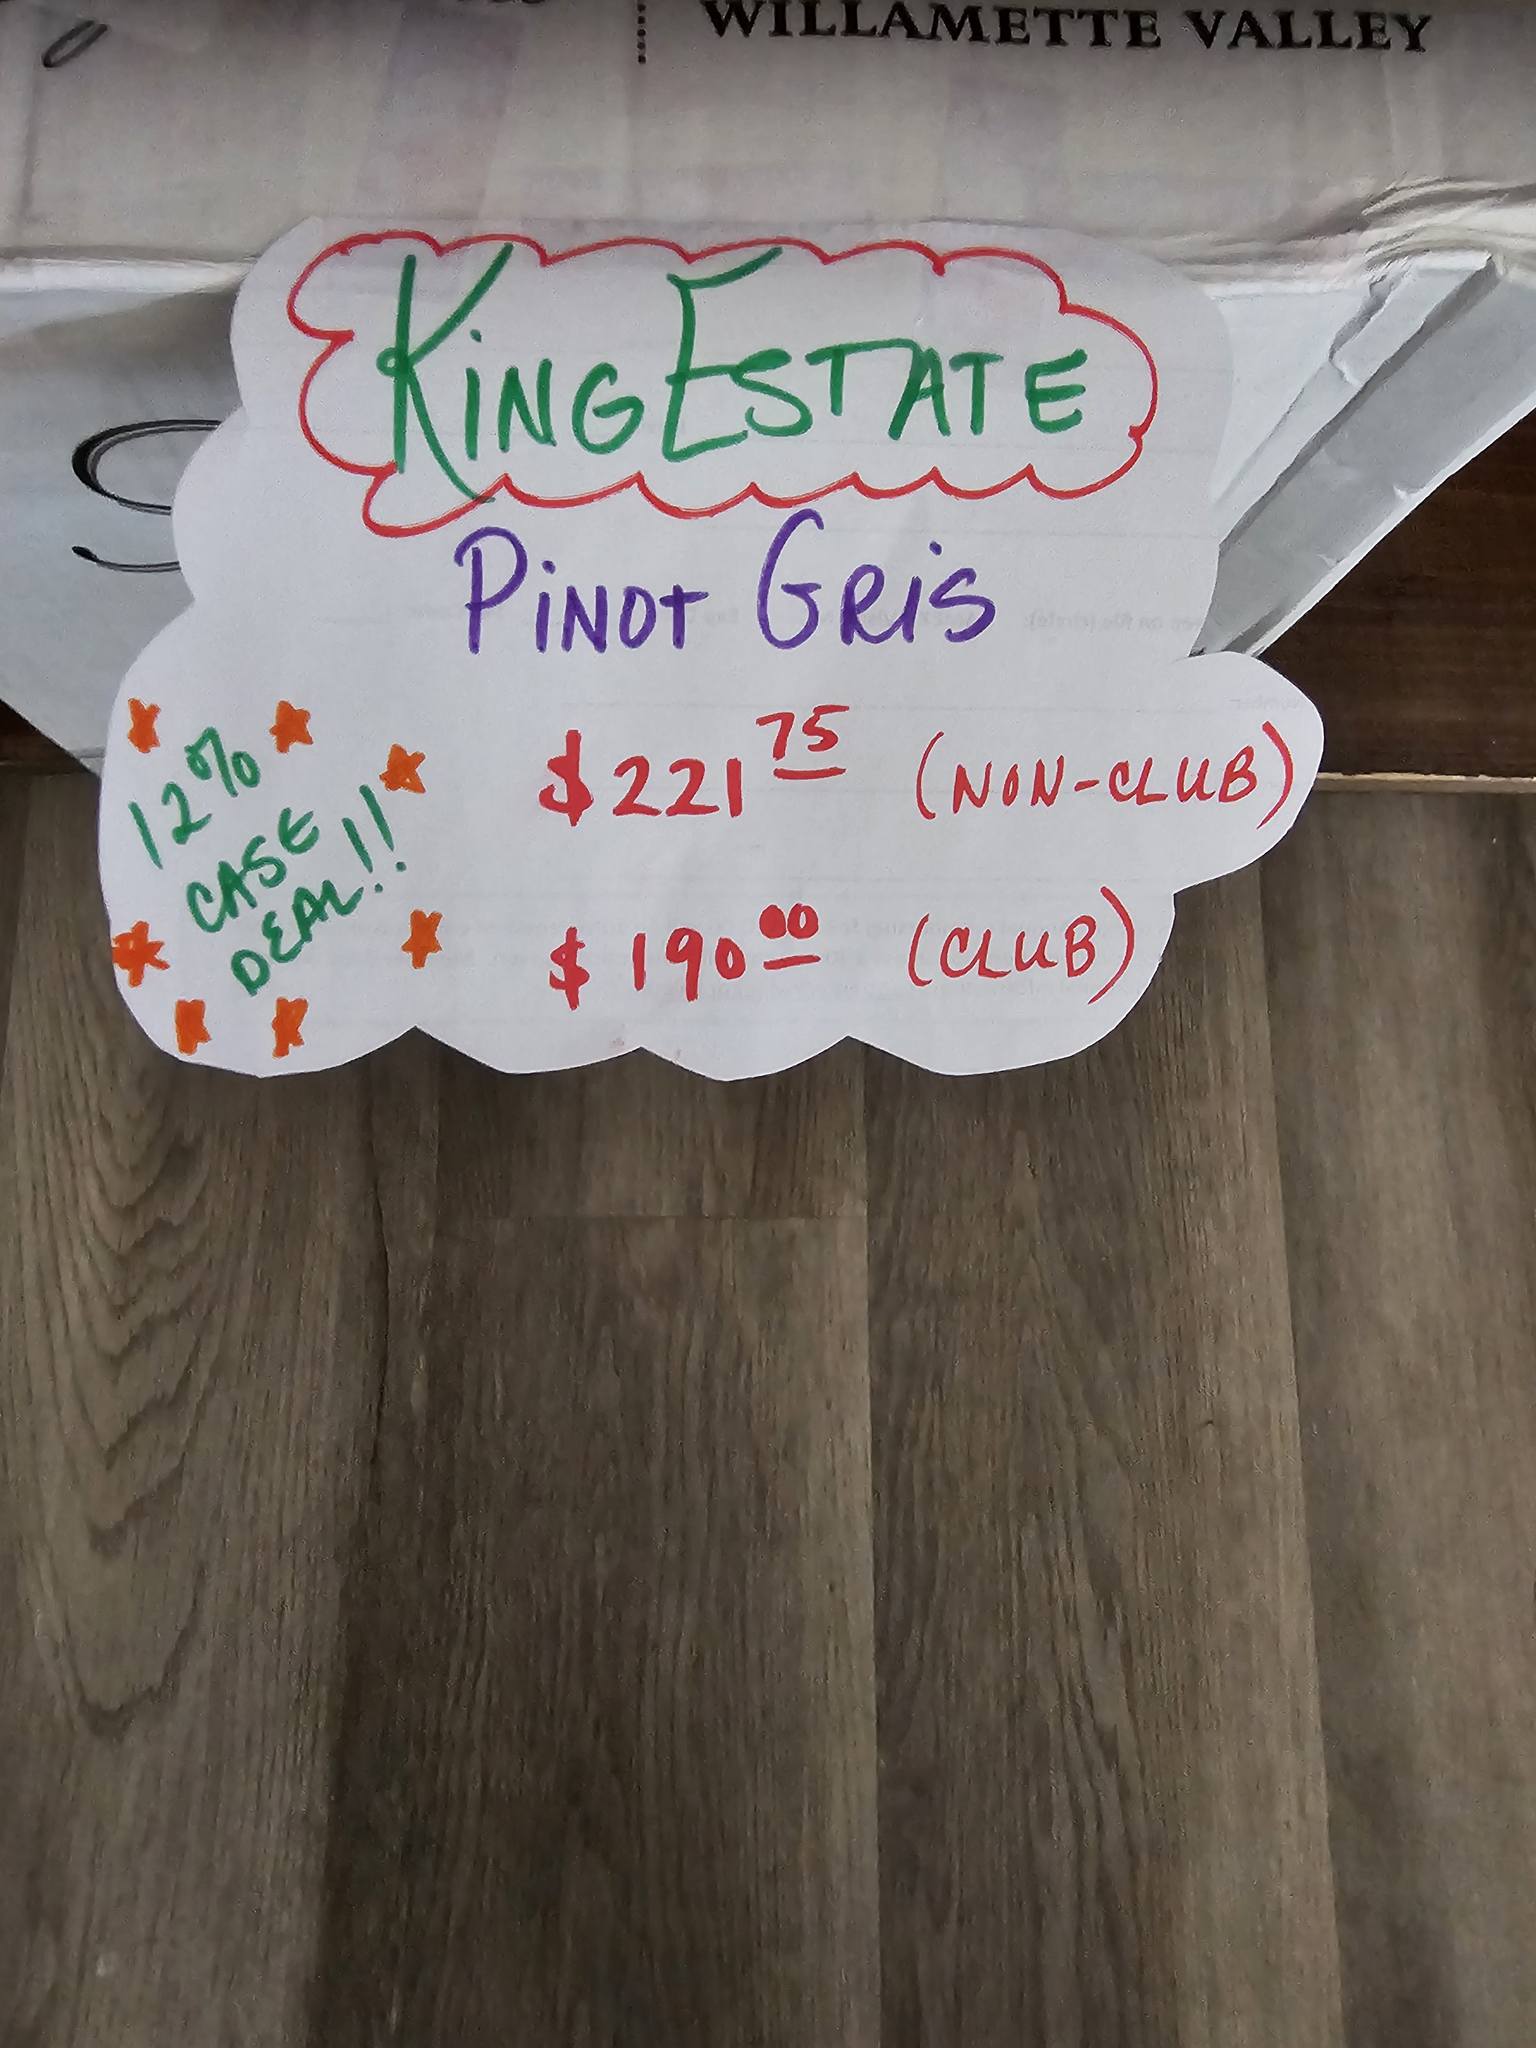 WILLAMETTE VALLEY
KING ESTATE
PINOT GRIS
12%
CASE
DEAL!!
$221 75 (NON-CLUB)
$190 00 (CLUB)